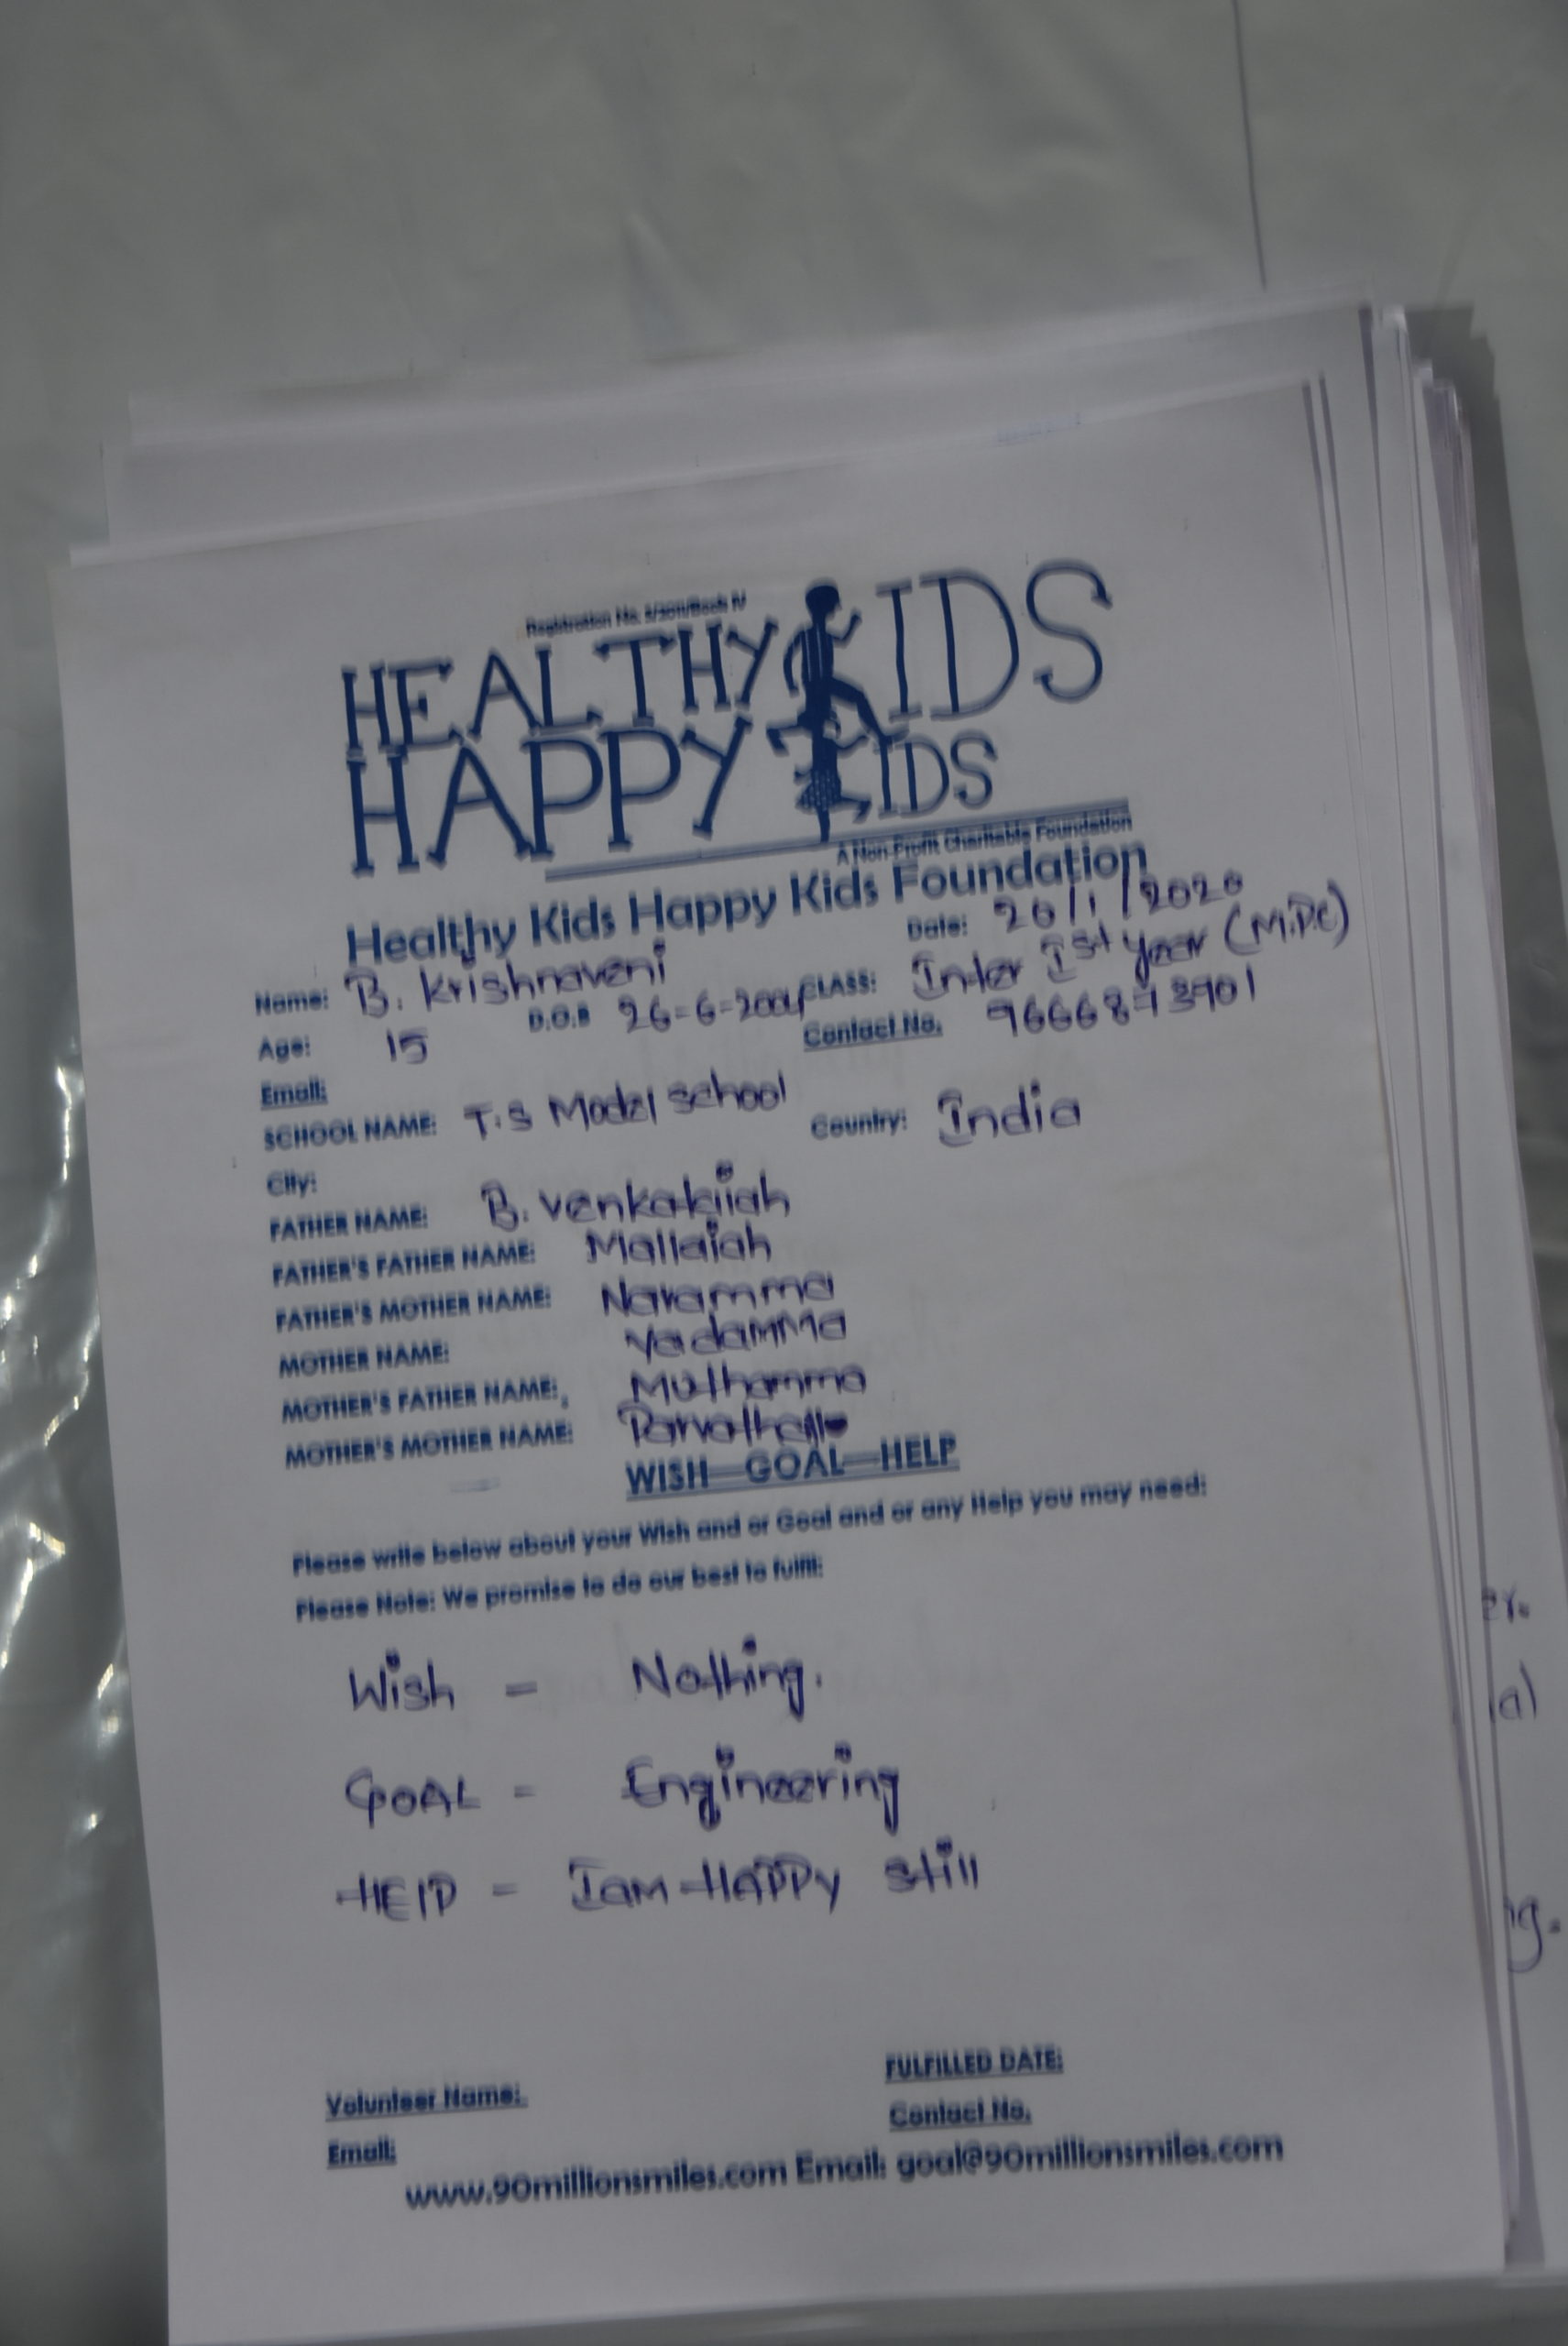 Registration No. 5/2011/Book IV
HEALTHY KIDS
HAPPY KIDS
A Non-Profit Charitable Foundation
Healthy Kids Happy Kids Foundation
Date: 20/1/2020
Name: B. Krishnaveni CLASS: Inter Ist year (M.P.C)
Age: 15 D.O.B 26-6-2004 Contact No. 9666873901
Email:
SCHOOL NAME: T.S Model school Country: India
City:
FATHER NAME: B. Venkatiiah
FATHER'S FATHER NAME: Mallaiah
FATHER'S MOTHER NAME: Naramma
MOTHER NAME: Yadamma
MOTHER'S FATHER NAME: Muthamma
MOTHER'S MOTHER NAME:
WISH—GOAL—HELP
Please write below about your Wish and or Goal and or any Help you may need:
Please Note: We promise to do our best to fulfil:
Wish = Nothing.
GOAL = Engineering
HElP = I am HAPPY still
FULFILLED DATE:
Volunteer Name:
Contact No.
Email:
www.90millionsmiles.com Email: goal@90millionsmiles.com
er.
a)
g.